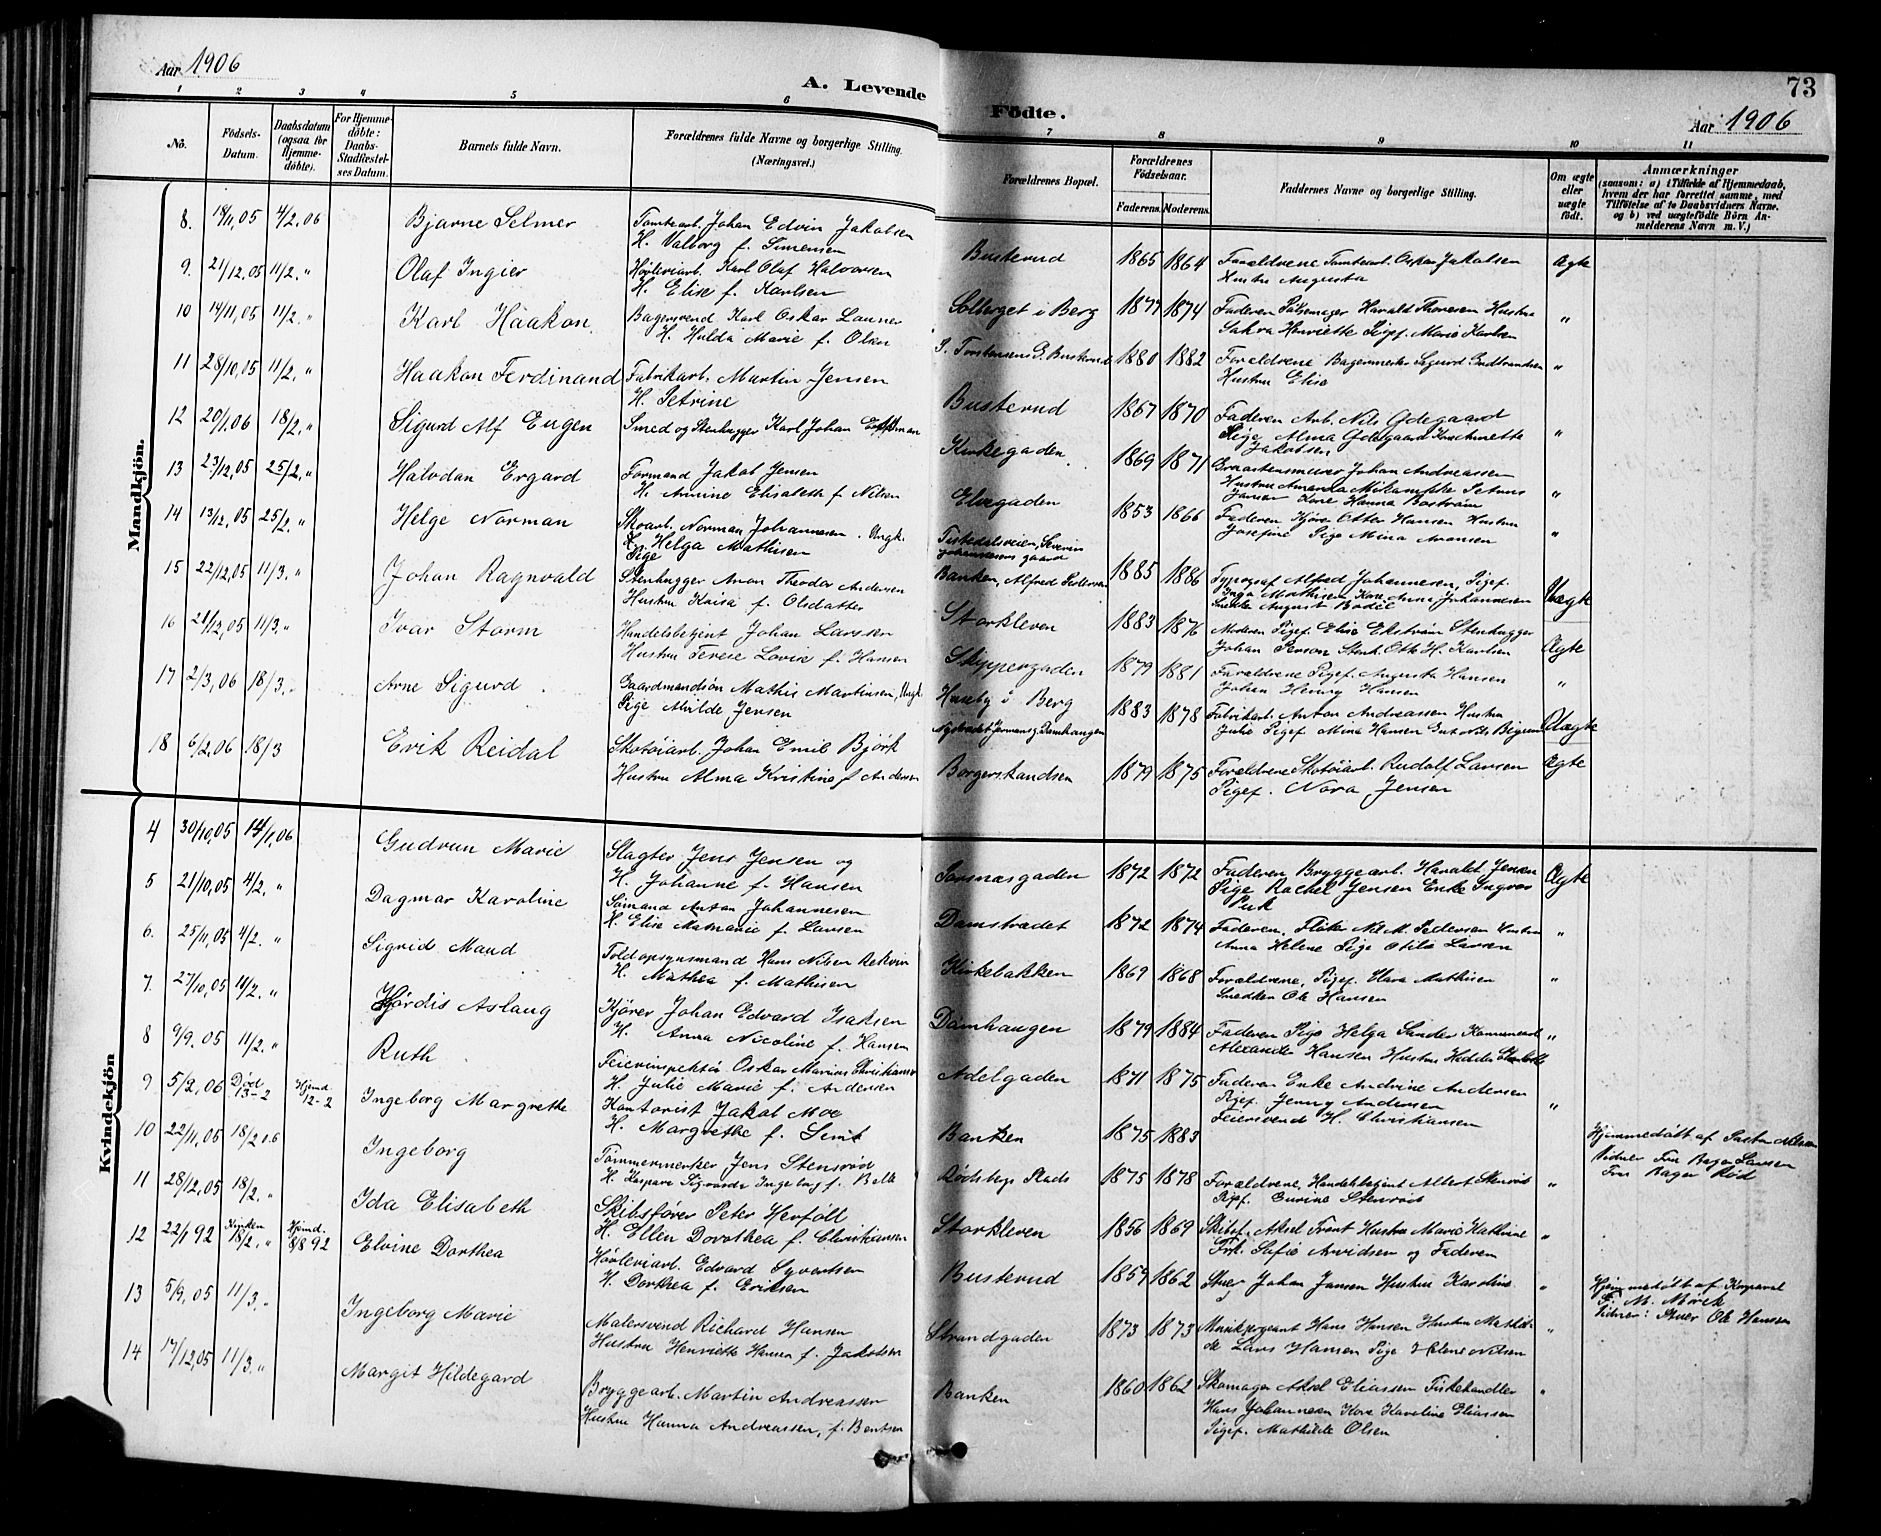 Aar 1906
A. Levende
1 2 3 4 5 6
No.
Födsels-Datum.
Daabsdatum (ogsaa for Hjemmedöbte).
For Hjemmedöbte: Daabs-Stadfæstelses Datum.
Barnets fulde Navn.
Forældrenes fulde Navne og borgerlige Stilling. (Næringsvei.)
Mandkjön.
8. 18/11,05 4/2,06 Bjarne Selmer Tomtearb. Johan Edvin Jakobsen
H. Valborg f. Simensen
9. 21/12,05 11/2," Olaf Ingier Høvleriarb. Karl Olaf Halvorsen
H. Elise f. Karlsen
10 14/11,05 11/2," Karl Haakon Bagersvend Karl Oskar Launer
H. Hulda Marie f. Olsen
11 28/10,05 11/2," Haakon Ferdinand Fabrikarb. Martin Jensen
H. Petrine
12 20/1,06 18/2," Sigurd Alf Eugen Smed og Stenhugger Karl Johan
13 23/12,05 25/2," Halvdan Ergard Formand Jakob Jensen
H. Annine Elisabeth f. Nilsen
14 13/12,05 25/2," Helge Norman Skoarb. Norman Johannesen. Ungk.
Pige Helga Mathisen
15 22/12,05 11/3," Johan Ragnvald Stenhugger Anon Theodor Andersen
Hustru Kaisa f. Olsdatter
16 21/12,05 11/3," Ivar Storm Handelsbetjent Johan Larssen
Hustru Terese Lovise f. Hansen
17 2/3,06 18/3," Arne Sigurd Gaardmandsøn Mathis Martinsen, Ungk.
Pige Alvilde Jensen
18 6/2,06 18/3 Erik Reidal Skotøiarb. Johan Emil Bjørk
Hustru Alma Kristine f. Andersen
Kvindekjön
4 30/10,05 14/1,06 Gudrun Marie Slagter Jens Jensen og
H. Johanne f. Hansen
5 21/10,05 4/2," Dagmar Karoline Sømand Anton Johannesen
H. Elise Matranie f. Larsen
6. 25/11,05 4/2." Sigrid Maud Toldopsynsmand Hans Nilsen Rekvin
H. Mathea f. Mathisen
7. 27/10,05 11/2," Hjørdis Aslaug Kjører Johan Edvard Isaksen
H. Anna Nicoline f. Hansen
8 9/9.05 11/2." Ruth Feierinspektør Oskar Marius Christiansen
H. Julie Marie f. Andersen
9 5/2,06 Død 13-2 Hjemd. 12-2 Ingeborg Margrethe Kontorist Jakob Moe
H. Margrethe f. Smit
10 22/11,05 18/2 06 Ingeborg Tømmermerker Jens Stensrød
H. Kaspara Sigvarda Ingeborg f. Bølk
11 28/12,05 18/2," Ida Elisabeth Skibsfører Peter Herføll
H. Ellen Dorothea f. Christiansen
12 22/1 92 Kirken 18/2," Hjemd. 8/8 92 Elvine Dorthea Høvleriarb. Edvard Syvertsen
H. Dorthea f. Eriksen
13 5/9,05 11/3," Ingeborg Marie Malersvend Richard Hansen
Hustru Henriette Hansen f. Jakobsen
14 17/12,05 11/3," Margit Hildegard Bryggearb. Martin Andreassen
Hustru Hanna Andreassen, f. Bentsen
73
Födte.
Aar 1906
7 8 9 10 11
Forældrenes Bopæl.
Forældrenes Födselsaar.
Faderens. Moderens.
Faddernes Navne og borgerlige Stilling.
Om ægte eller uægte födt.
Anmærkninger
(saasom: a) i Tilfælde af Hjemmedaab,
hvem der har forrettet samme, med
Tilföielse af to Daabsvidners Navne.
og b) ved uægtefödte Börn An-
melderens Navn m. V.)
Busterud 1865 1864 Forældrene Tomtearb. Oskar Jakobsen Ægte
Hustru Augusta
Solberget i Berg 1877 1874 Faderen Pølsemager Harald Thoresen Hustru "
Sahra Henriette Pigef. Marie Karlsen
S. Torstensens G. Busterud 1880 1882 Forældrene Bagermester Sigurd Gudbrandsen "
Hustru Elise
Busterud 1867 1870 Faderen Arb. Nils Ødegaard
Pige Alma Ødegaard "
Jakobsen
Kirkegaden 1869 1871 Graastensmurer Johan Andreassen
Hustru Amanda Petrus "
Jansen Kone Hanna Bostrøm
Elvegaden 1853 1866 Faderen Kjører Otter Hansen Hustru
Josefine Pige Mina Aronsen "
Tistedalsveien, Severin
Johannesens gaard
1885 1886 Typograf Alfred Johannesen, Pigef. Uægte
Inga Mathisen Kone Anna Johannesen
August Bodie
Banken, Alfred Pedersen
Storkleven 1883 1876 Moderen Pigef. Elise Ekstrøm Stenhugger Ægte
Johan Person Stenh. Otto H. Karlsen
Skippergaden 1879 1881 Forældrene Pigef. Augusta Hansen "
Johan Henry Hansen
Huseby i Berg 1883 1878 Fabrikarb. Anton Andreassen Hustru Uægte
Julie Pigef. Mina Hansen
Damhaugen
Borgerskandsen 1879 1875 Forældrene Skotøiarb. Rudolf Larsen Ægte
Pigef. Nora Jensen
Sorsnæsgaden 1872 1872 Faderen Bryggearb. Harald Jensen Ægte
Pige Rachel Jensen Enke Ingvor
Puk
Damstrædet 1872 1874 Faderen, Fløter Nils M. Pedersen Hustru "
Anna Helene Pige Otilie Larsen
Kirkebakken 1869 1868 Forældrene, Pigef. Klara Mathisen "
Snedker Ole Hansen
Damhaugen 1879 1884 Faderen Pige Helga Sander "
Alexander Hansen Hustru Hedda
Adelgaden 1871 1875 Faderen Enke Andrine Andersen
Pigef. Jenny Andersen "
Feiersvend H. Christiansen
Banken 1875 1883 Hjemmedøbt af Pastor Nilssen
Vidner Fru Bager Larsen
Fru Bager Rød
Rødsbergs Plads 1875 1878 Forældrene, Handelsbetjent Albert Stensrød "
Pigef. Gurine Stensrød
Storkleven 1856 1869 Skibsf. Aksel Tront Hustru Marie Kathrine "
Frk. Sofie Arvidsen og Faderen
Busterud 1859 1862 Stuer Johan Jansen Hustru Karoline "
Hjemmedøbt af Korporal
F. M. Mørck
Vidner: Stuer Ole Hansen
Strandgaden 1873 1873 Musiksergeant Hans Hansen Hustru Mathil- "
de Lars Hansen Pige Helene Nilsen
Banken 1860 1862 Skomager Aksel Eliassen Fiskehandler "
Hans Johannesen Kone Karoline Eliassen
Pigef. Mathilde Olsen